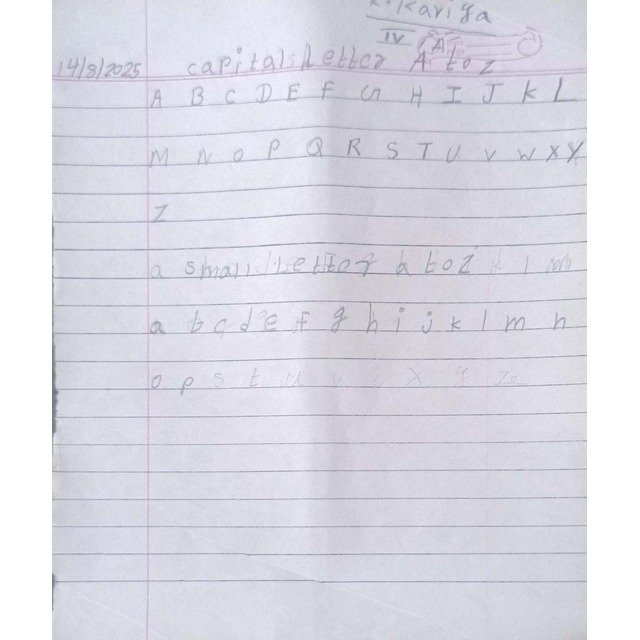 K. Kariga
IV A
14/8/2025 capitals Letter A to z
A B C D E F G H I J K L
M N O P Q R S T U V W X Y
Z
a small Letter a to z k l m
a b c d e f g h i j k l m n
o p s t u v w x y z